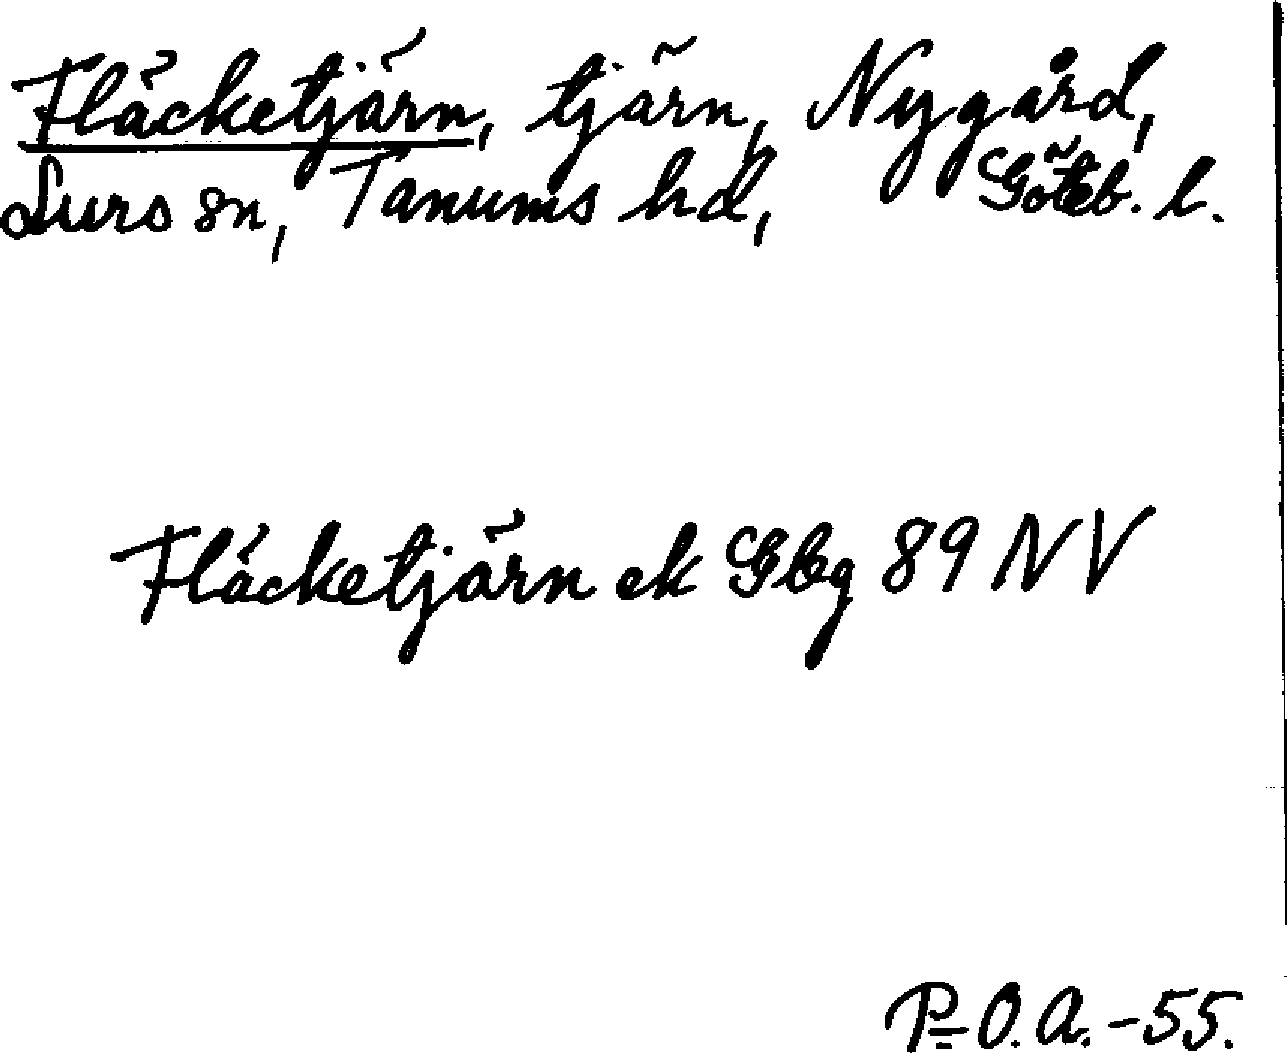 Fläcketjärn, tjärn, Nygård,
Lurs sn, Tanums hd, Göteb. l.
Fläcketjärn ek Gbg 89 NV
P=O.A.-55.